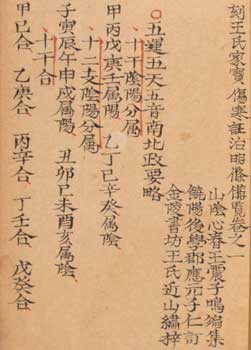 刻王氏家寶傷寒証治明條備覽卷之一
山陰心春王震子鳴編集
饒陽後學郡應元子仁訂
金陵書坊王氏近山繡梓
○五運五天五音南北政要略
十干陰陽分属
甲丙戊庚壬属陽　乙丁己辛癸属陰
十二支陰陽分属
子寅辰午申戌属陽　丑卯巳未酉亥属陰
十干合
甲己合　乙庚合　丙辛合　丁壬合　戊癸合